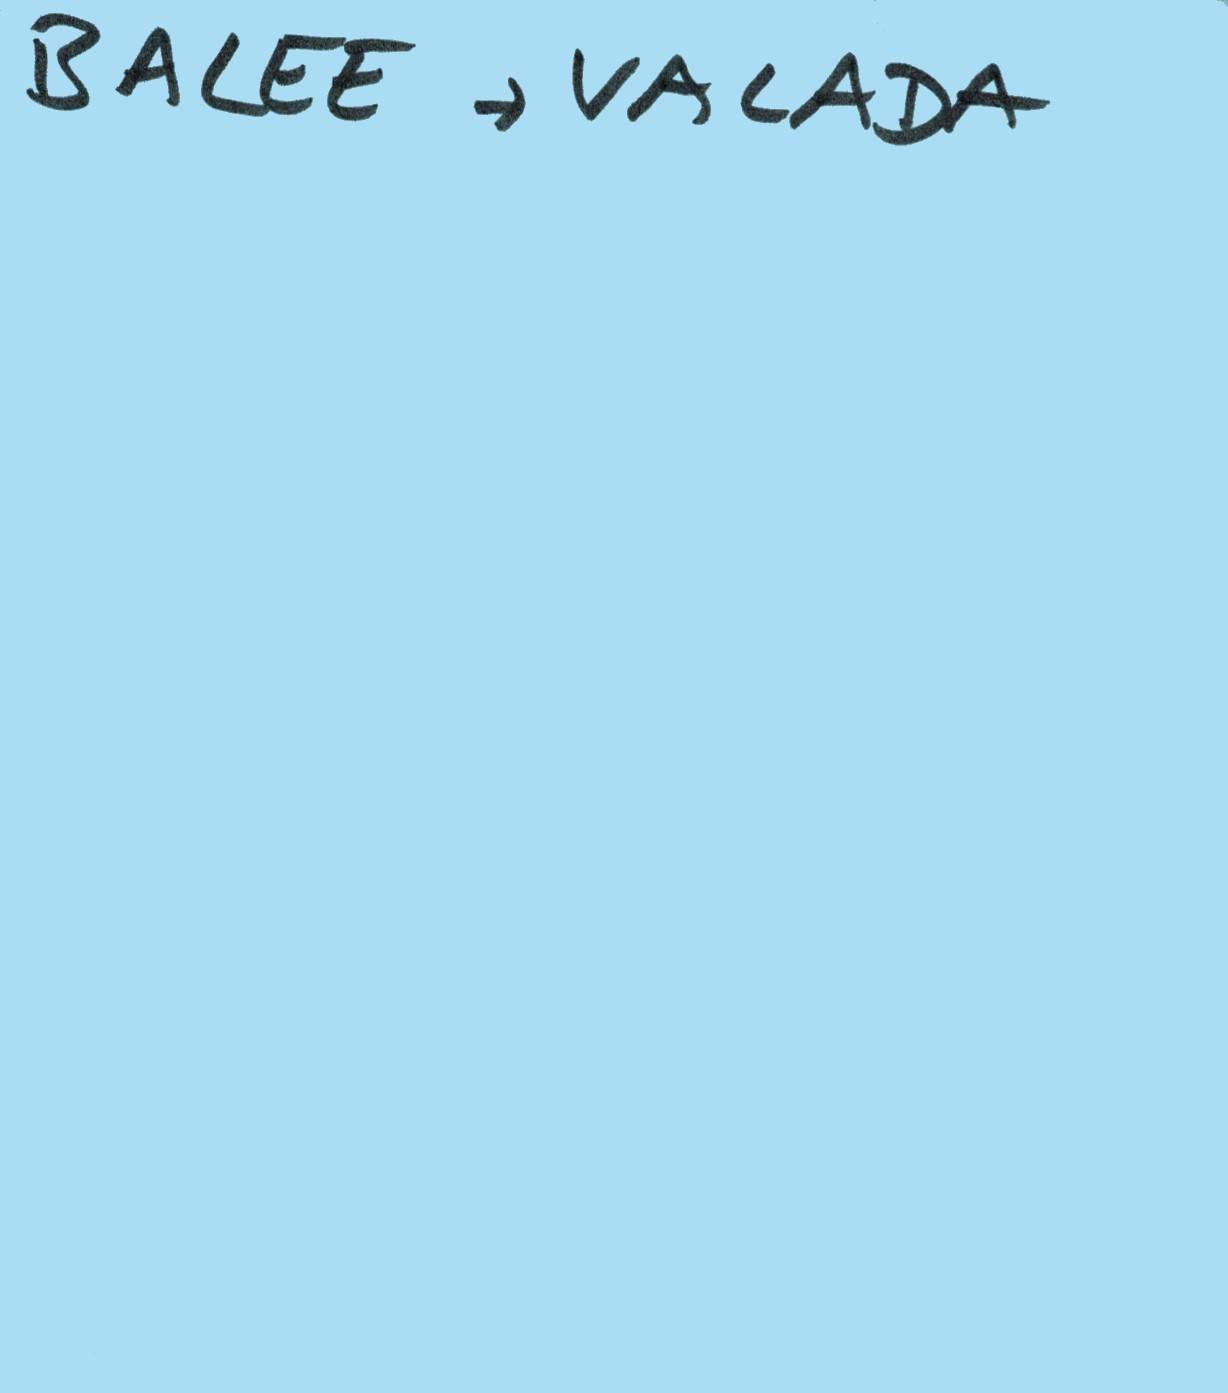 BALEE → VALADA